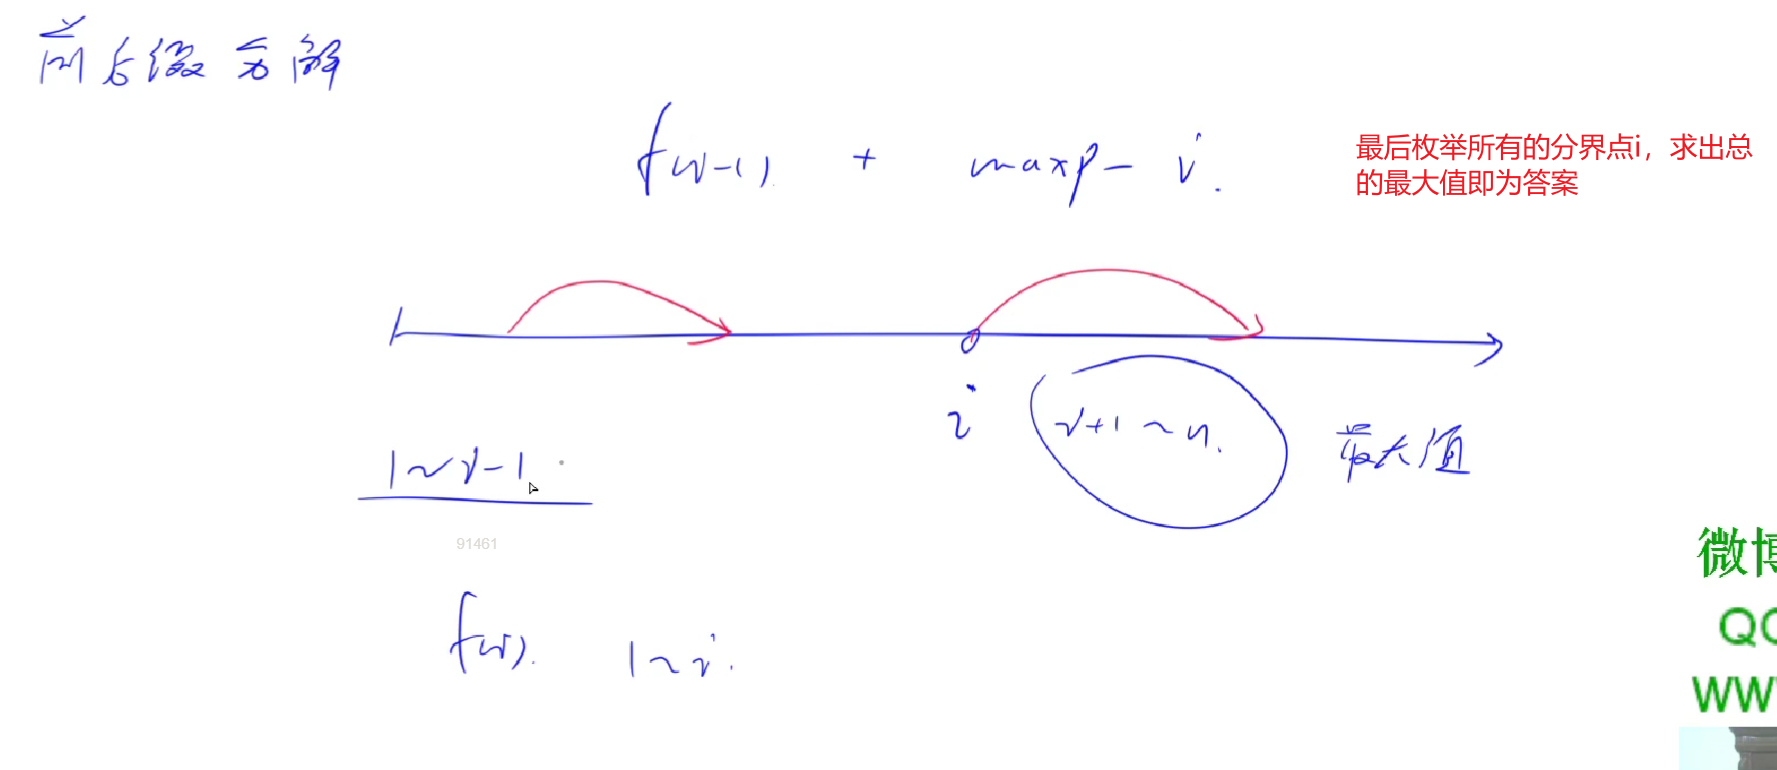 前后缀分解
f(i-1) + maxp - i.
最后枚举所有的分界点i，求出总
的最大值即为答案
i
i+1~n.
最大值
1~i-1
91461
f(i). 1~i.
微博
QQ
WWW